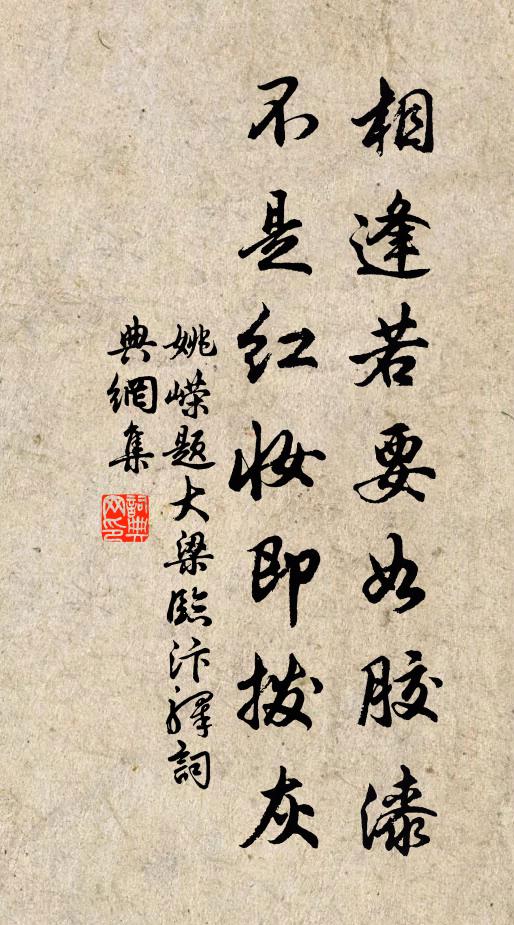 相逢若要如胶漆
不是红妆即拨灰
姚嵘题大梁临汴驿詞
典網集
詞典网印